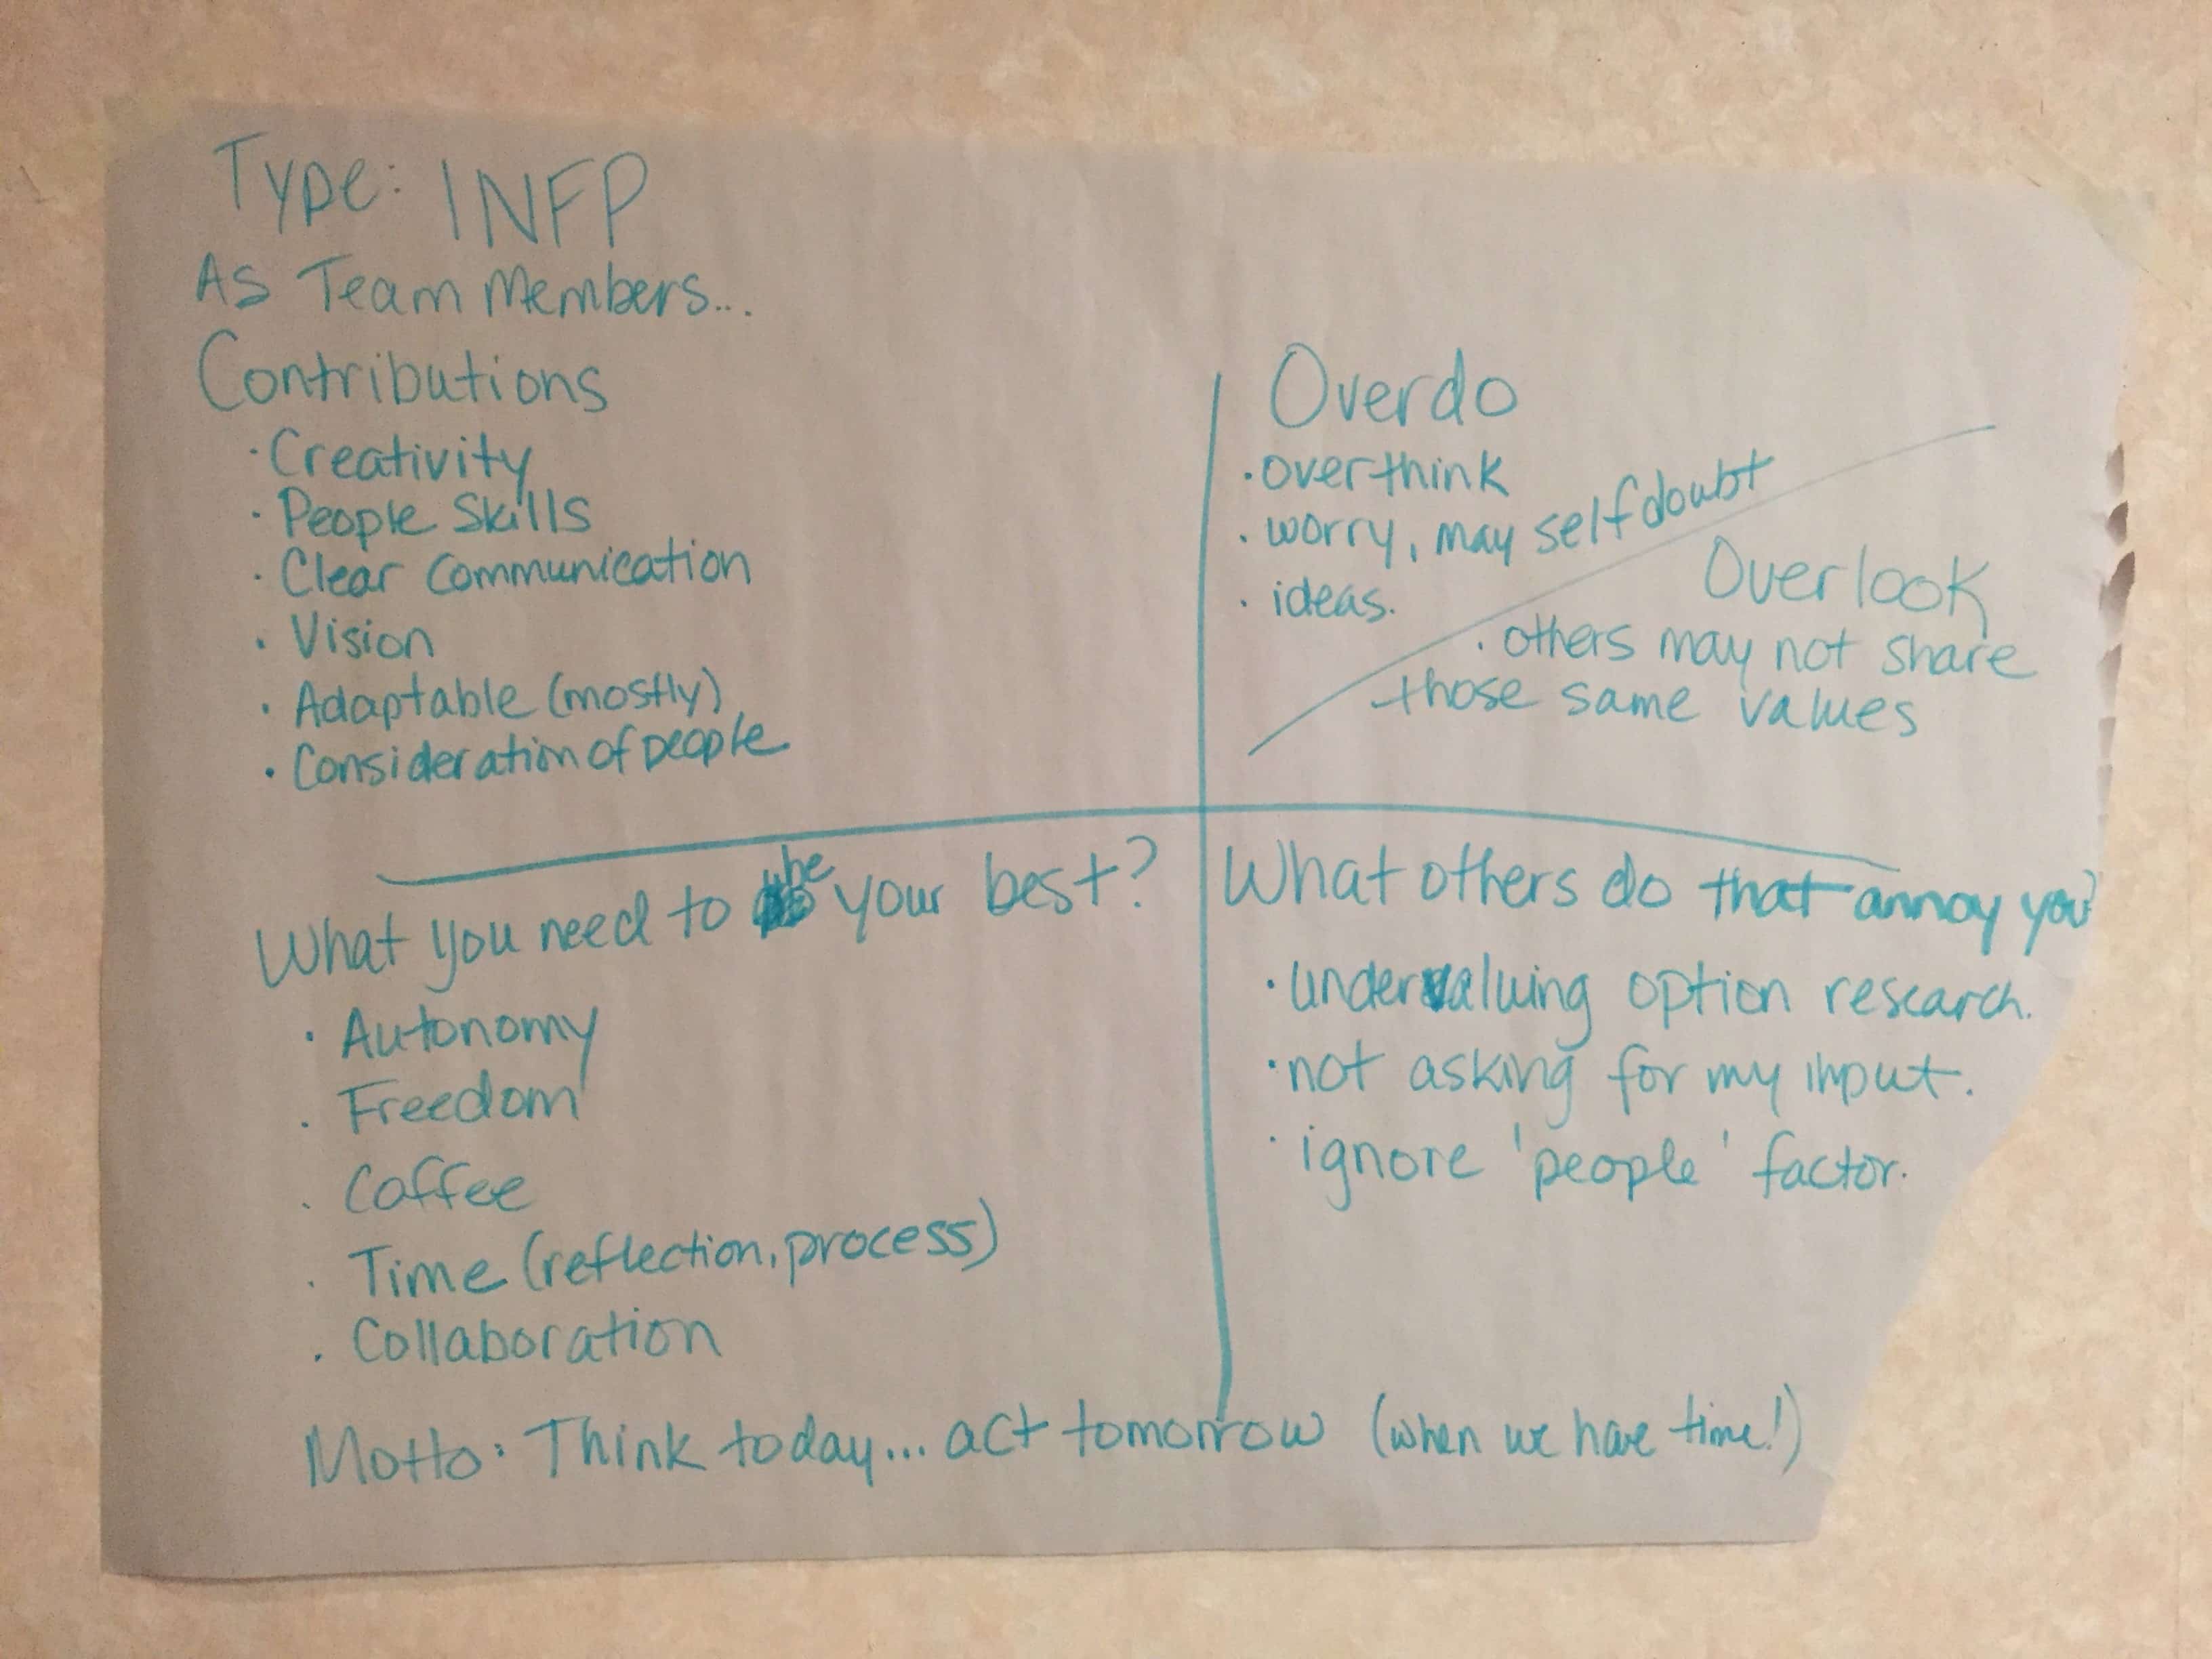 Type: INFP
As Team Members...
Contributions
· Creativity
· People Skills
· Clear Communication
· Vision
· Adaptable (mostly)
· Consideration of people
Overdo
· overthink
· worry, may self doubt
· ideas.
Overlook
· others may not share
those same values
What you need to be your best?
· Autonomy
· Freedom
· Coffee
· Time (reflection, process)
· Collaboration
What others do that annoy you?
· undervaluing option research.
· not asking for my input.
· ignore 'people' factor.
Motto: Think today... act tomorrow (when we have time!)